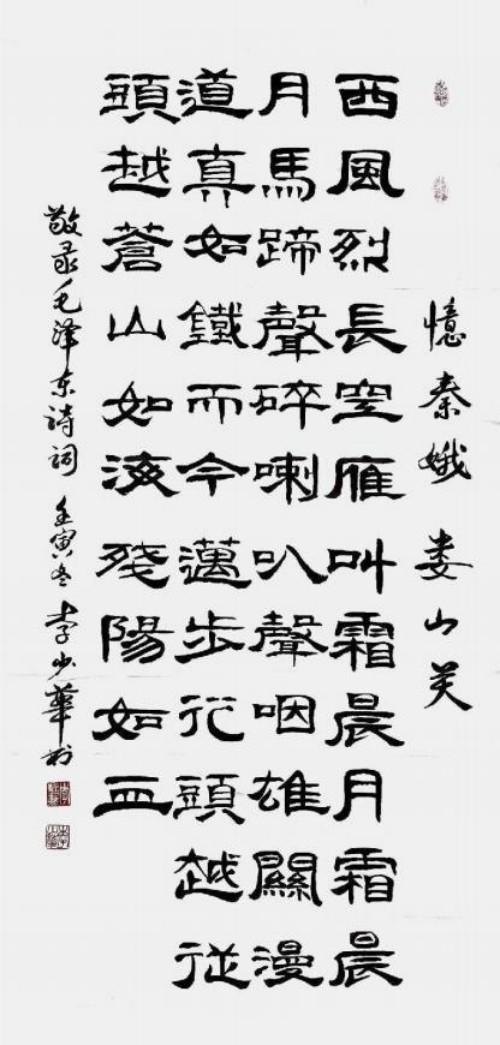 憶秦娥 娄山关
西風烈長空雁叫霜晨月霜晨
月馬蹄聲碎喇叭聲咽雄關漫
道真如鐵而今邁步從頭越從
頭越蒼山如海殘陽如血
敬录毛泽东诗词 壬寅冬 李少華